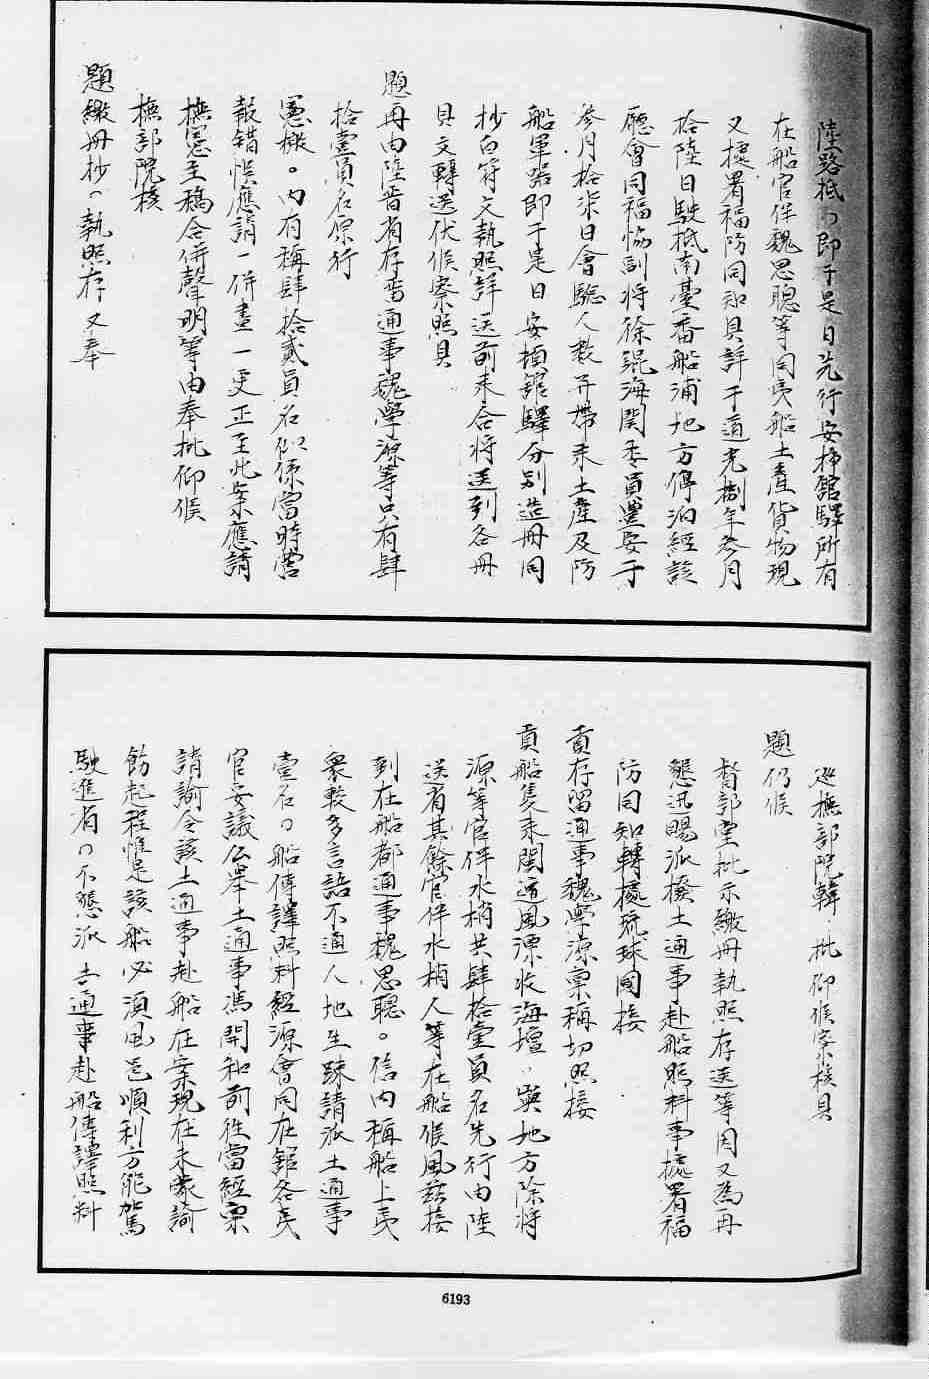 陸路抵口即于是日先行安插館驛所有
在船官伴魏思聰等同夷船土產貨物現
又據署福防同知具詳于道光捌年叄月
拾陸日駛抵南臺番船浦地方停泊經該
廳會同福協副將徐錕海關委員豐安于
叄月拾柒日會驗人數并帶來土產及防
船軍器即于是日安頓館驛分別造冊同
抄白符文執照詳送前來合將送到各冊
具文轉送伏候察照具
題再由陸晋省存留通事魏學源等只有肆
拾壹員名原行
憲檄。內有稱肆拾貳員名似係當時營
報錯悮應請一併畫一更正至此案應請
撫憲主稿合併聲明等由奉批仰候
撫部院核
題繳冊抄〃執照存又奉
巡撫部院韓 批仰候察核具
題仍候
督部堂批示繳冊執照存送等因又為再
懇迅賜派撥土通事赴船照料事據署福
防同知轉據琉球國接
貢存留通事魏學源稟稱切照接
貢船隻來閩遭風漂收海壇、與地方除將
源等官伴水梢共肆拾壹員名先行由陸
送省其餘官伴水梢人等在船候風茲接
到在船都通事魏思聰。信內稱船上夷
眾較多言語不通人地生疎請派土通事
壹名口船傳譯照料經源會同在館各夷
官妥議公舉土通事馮開和前往當經稟
請諭令該土通事赴船在案現在未蒙諭
飭起程惟是該船必須風色順利方能駕
駛進省口不懇派土通事赴船傳譯照料
6193